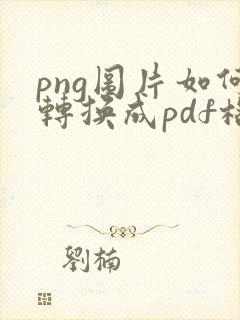 png圖片如何
轉換成pdf格
劉楠